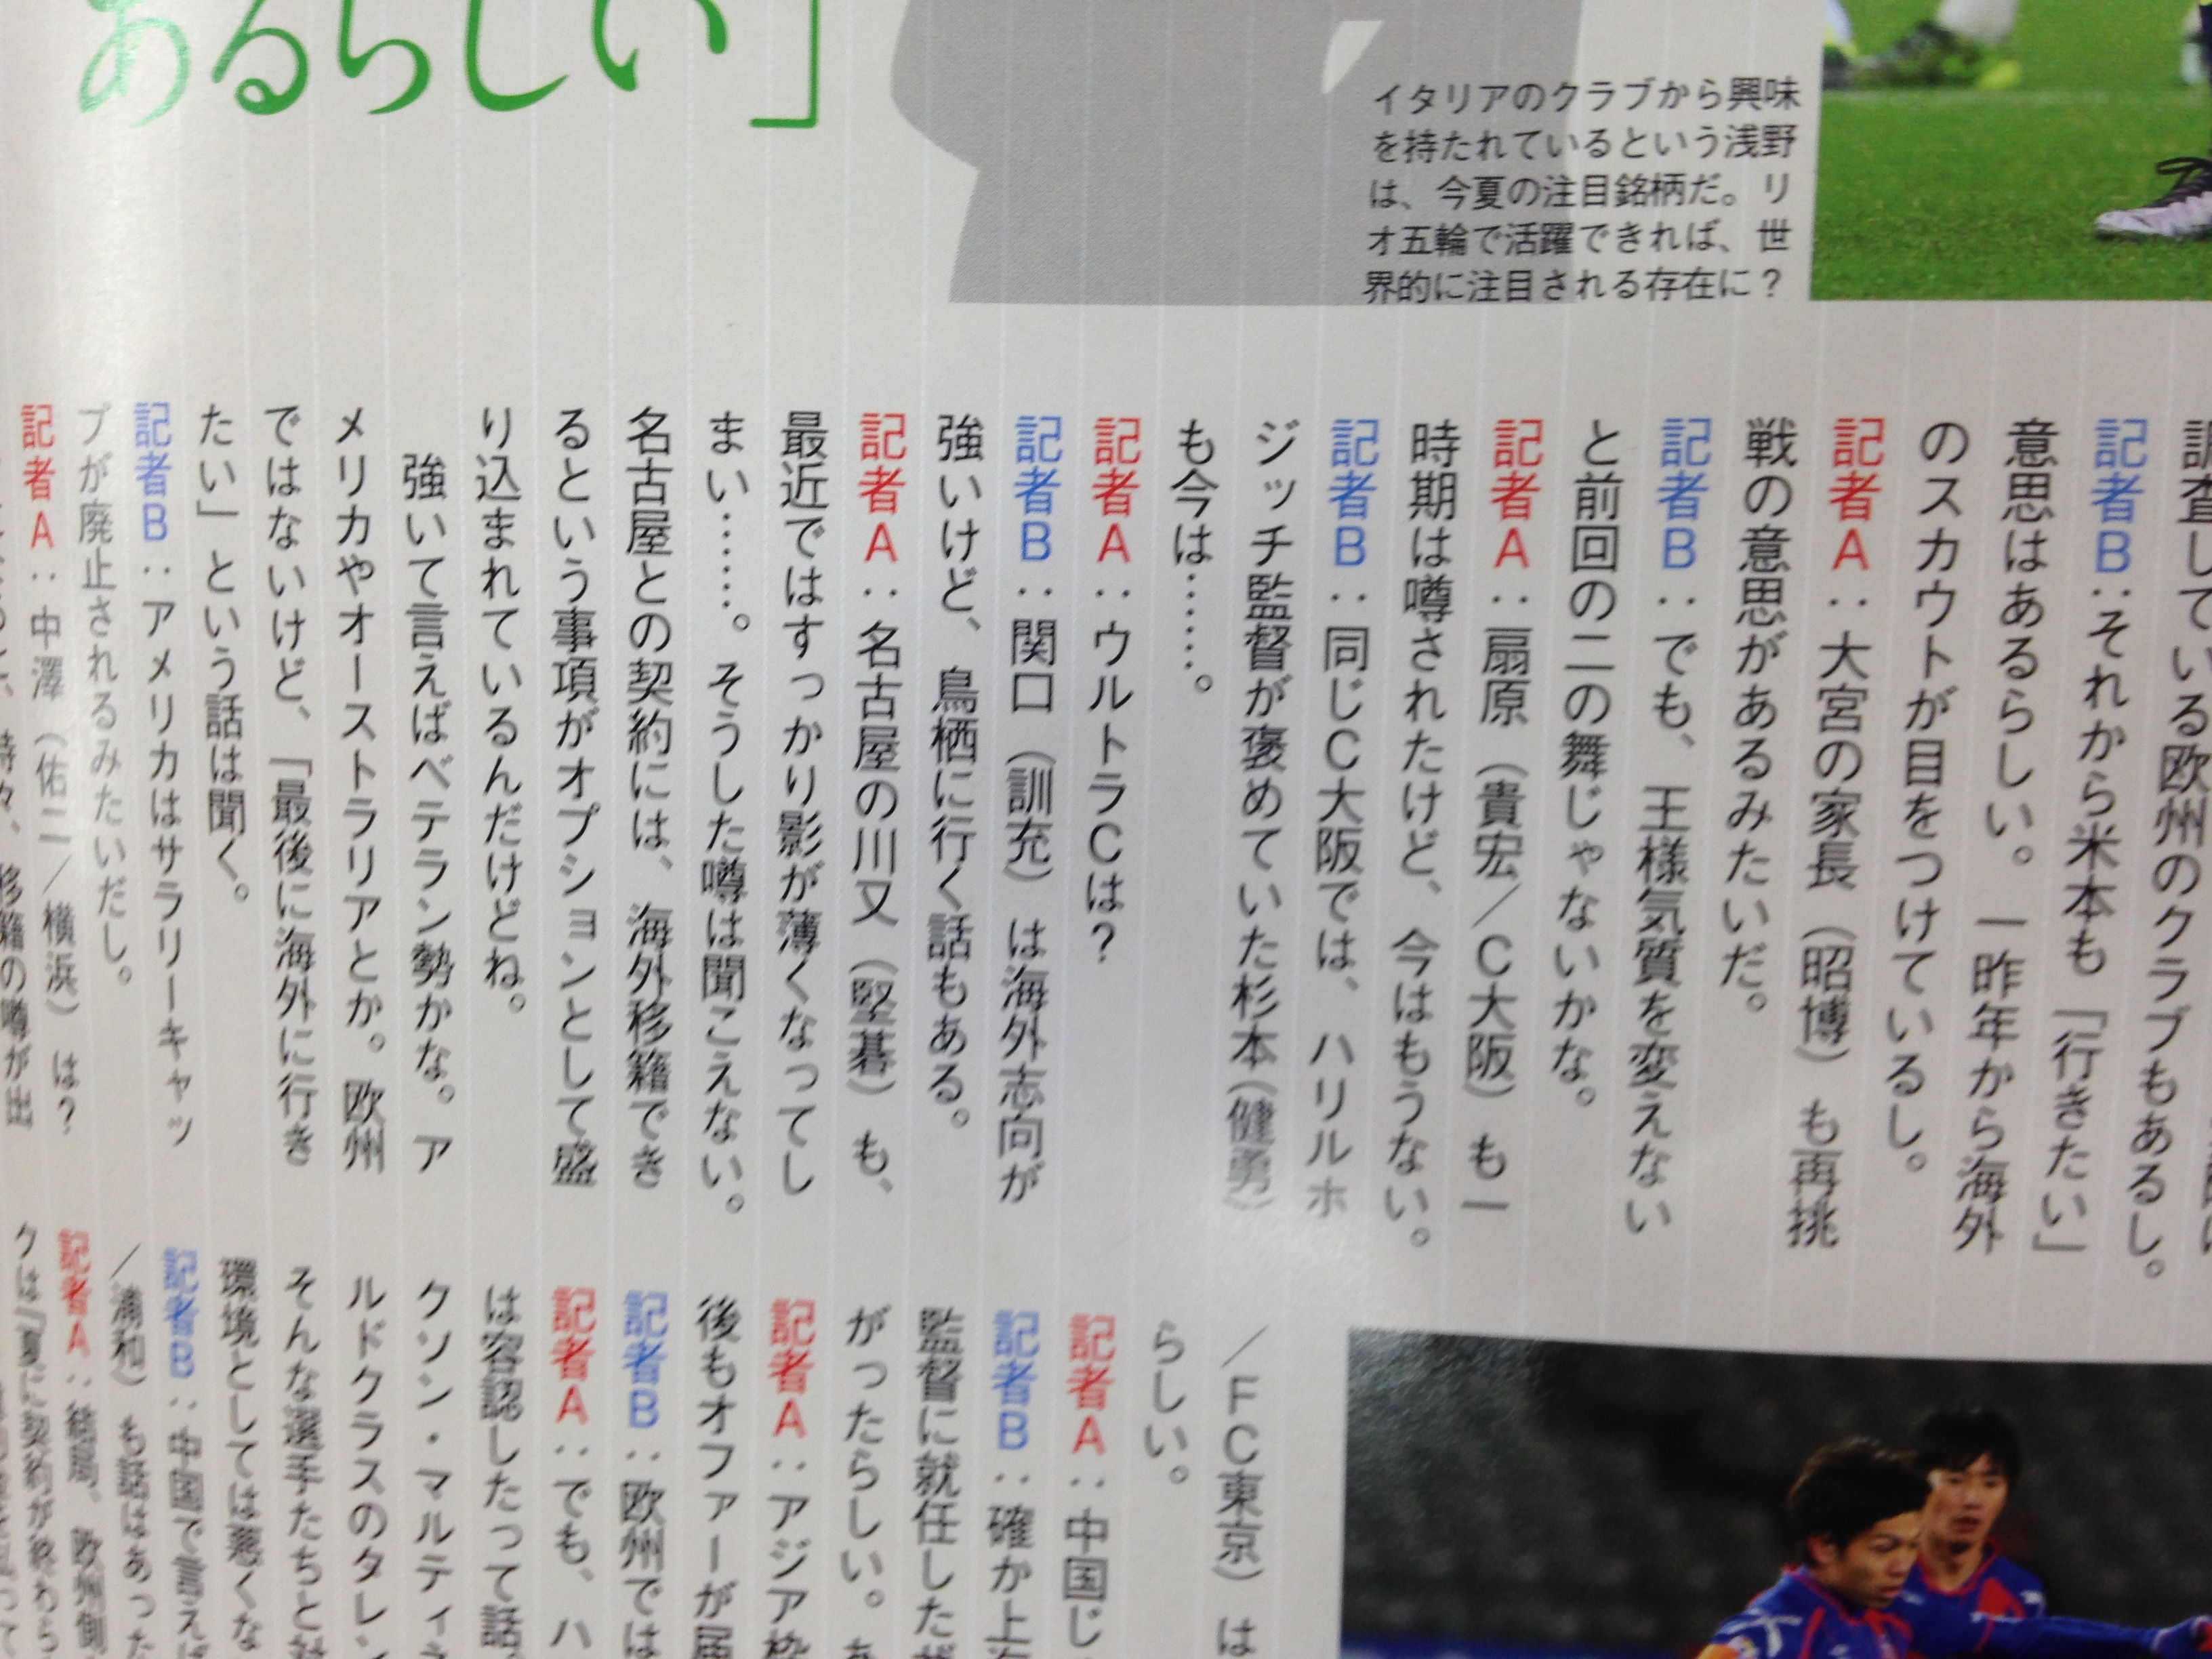 あるらしい」
イタリアのクラブから興味
を持たれているという浅野
は、今夏の注目銘柄だ。リ
オ五輪で活躍できれば、世
界的に注目される存在に？
調査している欧州のクラブもあるし。
記者B：それから米本も「行きたい」
意思はあるらしい。一昨年から海外
のスカウトが目をつけているし。
記者A：大宮の家長（昭博）も再挑
戦の意思があるみたいだ。
記者B：でも、王様気質を変えない
と前回の二の舞じゃないかな。
記者A：扇原（貴宏／C大阪）も一
時期は噂されたけど、今はもうない。
記者B：同じC大阪では、ハリルホ
ジッチ監督が褒めていた杉本（健勇）
も今は……。
記者A：ウルトラCは？
記者B：関口（訓充）は海外志向が
強いけど、鳥栖に行く話もある。
記者A：名古屋の川又（堅碁）も、
最近ではすっかり影が薄くなってし
まい……。そうした噂は聞こえない。
名古屋との契約には、海外移籍でき
るという事項がオプションとして盛
り込まれているんだけどね。
強いて言えばベテラン勢かな。ア
メリカやオーストラリアとか。欧州
ではないけど、「最後に海外に行き
たい」という話は聞く。
記者B：アメリカはサラリーキャッ
プが廃止されるみたいだし。
記者A：中澤（佑二／横浜）は？
時々、移籍の噂が出
／FC東京）は
らしい。
記者A：中国じ
記者B：確か上
監督に就任した
がったらしい。
記者A：アジア枠
後もオファーが届
記者B：欧州では
記者A：でも、ハ
は容認したって話
クソン・マルティネ
ルドクラスのタレン
そんな選手たちと対
環境としては悪くな
記者B：中国で言えば
／浦和）も話はあった
記者A：結局、欧州側
クは「夏に契約が終わら